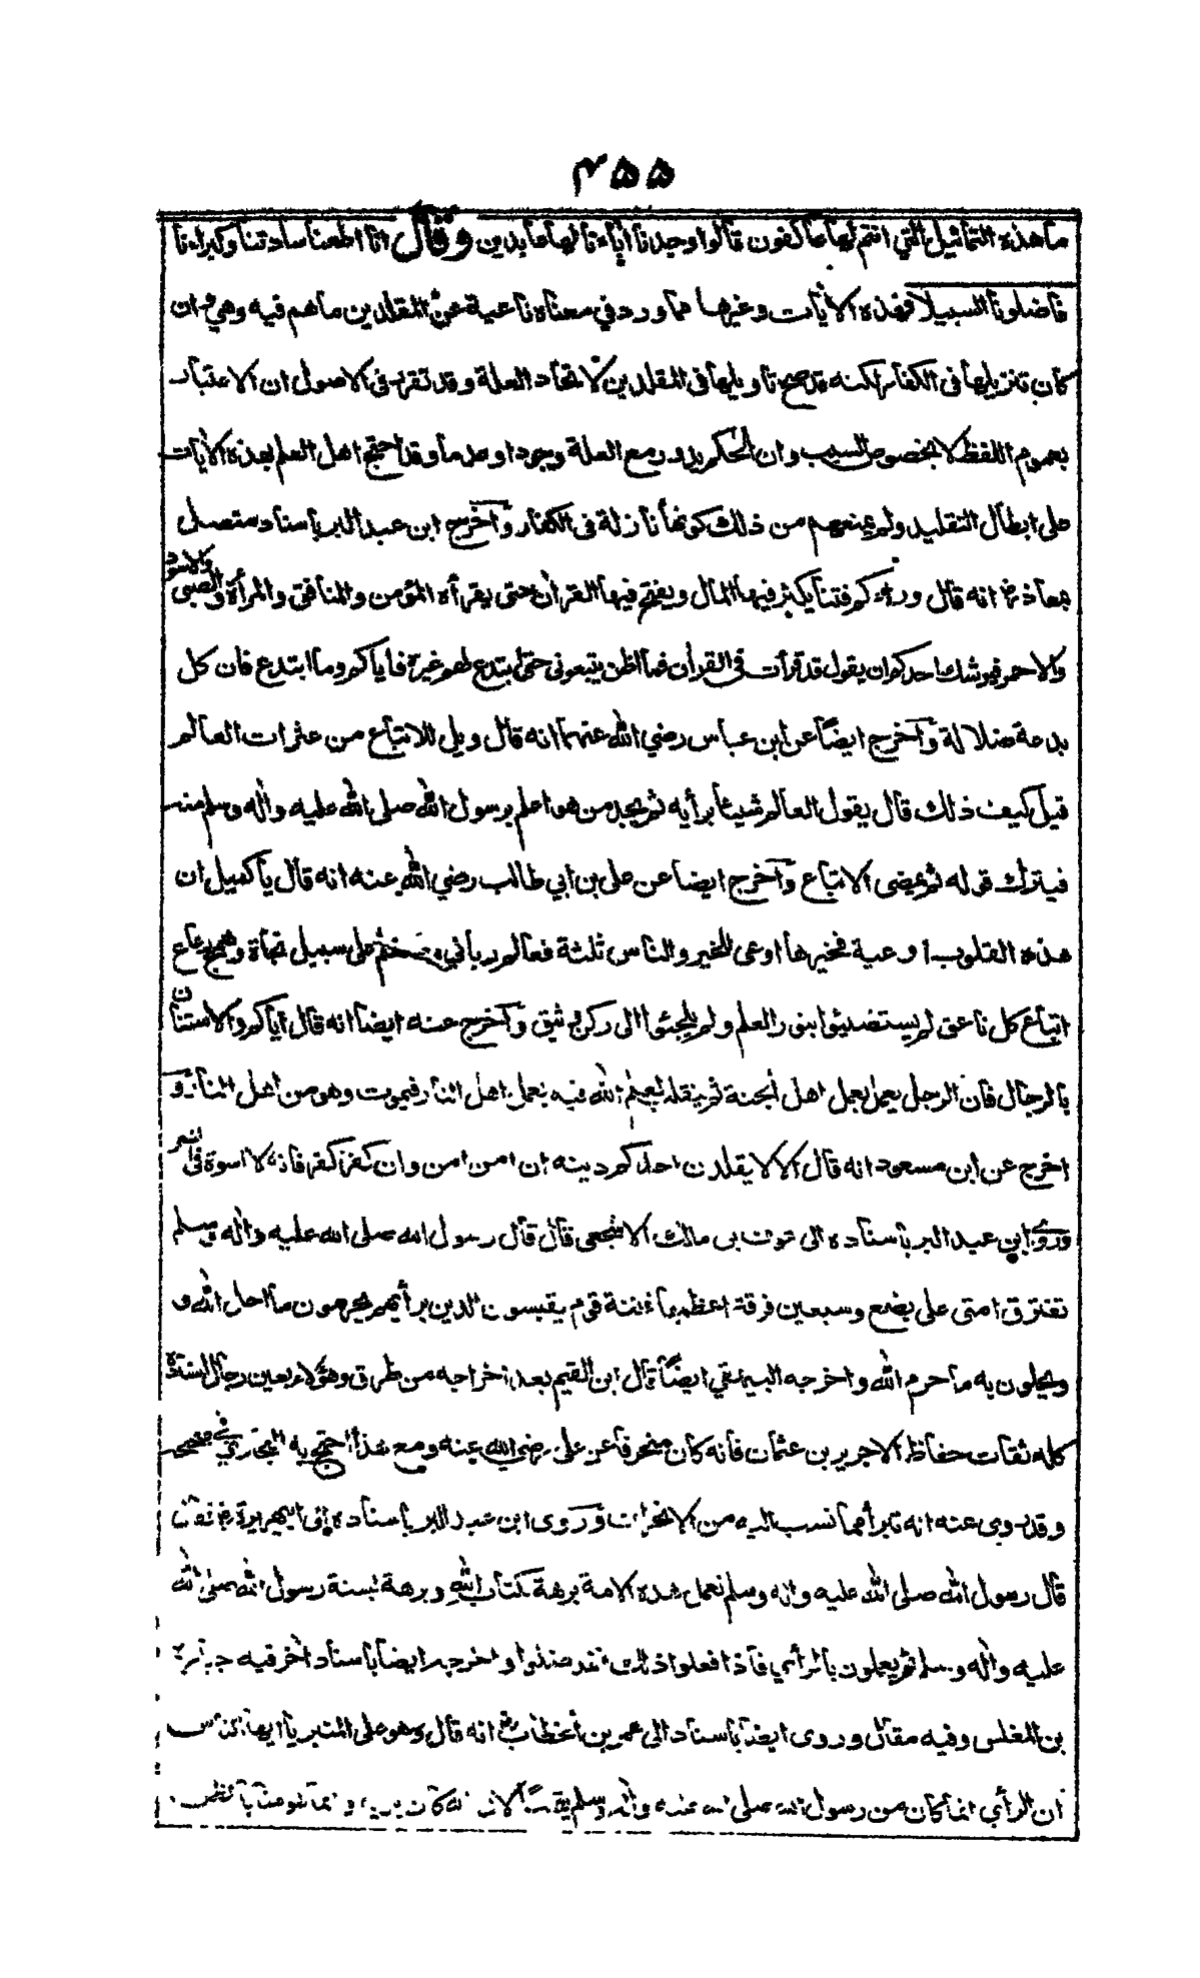 ٤٥٥
ما هذه التماثيل التي انتم لها عاكفون قالوا وجدنا آباءنا لها عابدين وقال انا اطعنا سادتنا وكبراءنا
فاضلونا السبيلا فهذه الآيات وغيرها مما ورد في معناه ناعية عن المقلدين ما هم فيه وهي وان
كان تنزيلها فى الكفار لكنه قد صح تاويلها فى المقلدين لاتحاد العلة وقد تقرر فى الاصول ان الاعتبار
بعموم اللفظ لا بخصوص السبب وان الحكم يدور مع العلة وجودا وعدما وقد احتج اهل العلم بهذه الآيات
على ابطال التقليد ولم يمنعهم من ذلك كونها نازلة فى الكفار واخرج ابن عبد البر باسناد متصل
بمعاذ رض انه قال وراءكم فتنا يكثر فيها المال ويفتح فيها القرآن حتى يقرأه المؤمن والمنافق والمرأة والصبي والاسود
والاحمر فيوشك احدكم ان يقول قد قرأت فى القرآن فما اظن يتبعونى حتى ابتدع لهم غيره فاياكم وما ابتدع فان كل
بدعة ضلالة واخرج ايضا عن ابن عباس رضي الله عنهما انه قال ويل للاتباع من عثرات العالم
قيل كيف ذلك قال يقول العالم شيئا برأيه ثم يجد من هو اعلم برسول الله صلى الله عليه وآله وسلم منه
فيترك قوله ثم يمضى الاتباع واخرج ايضا عن على بن ابي طالب رضي الله عنه انه قال يا كميل ان
هذه القلوب اوعية فخيرها اوعى للخير والناس ثلثة فعالم رباني ومتعلم على سبيل نجاة وهمج رعاع
اتباع كل ناعق لم يستضيئوا بنور العلم ولم يلجئوا الى ركن وثيق واخرج عنه ايضا انه قال اياكم والاستنان
بالرجال فان الرجل يعمل بعمل اهل الجنة ثم ينقلب لعلم الله فيه بعمل اهل النار فيموت وهو من اهل النار و
اخرج عن ابن مسعود انه قال الا لا يقلدن احدكم دينه ان امن امن وان كفر كفر فانه لا اسوة فى الشر
وروى ابن عبد البر باسناده الى عوف بن مالك الاشجعى قال قال رسول الله صلى الله عليه وآله وسلم
تفترق امتى على بضع وسبعين فرقة اعظمها فتنة قوم يقيسون الدين برأيهم يحرمون ما احل الله و
ويحلون به ما حرم الله واخرجه البيهقي ايضا قال ابن القيم بعد اخراجه من طرق وهؤلاء يعنى رجال اسناده
كلهم ثقات حفاظ الا جرير بن عثمان فانه كان منحرفا عن على رضي الله عنه ومع هذا احتج به البخاري في صحيحه
وقد روى عنه انه تبرأ مما نسب اليه من الانحراف وروى ابن عبد البر باسناده الى ابي هريرة رض قال
قال رسول الله صلى الله عليه وآله وسلم تعمل هذه الامة برهة بكتاب الله وبرهة بسنة رسول الله صلى الله
عليه وآله وسلم ثم يعملون بالرأي فاذا فعلوا ذلك فقد ضلوا واخرجه ايضا باسناد آخر فيه جبارة
بن المغلس وفيه مقال وروى ايضا باسناد الى عمر بن الخطاب رض انه قال وهو على المنبر يا ايها الناس
ان الرأي انما كان من رسول الله صلى الله عليه وآله وسلم